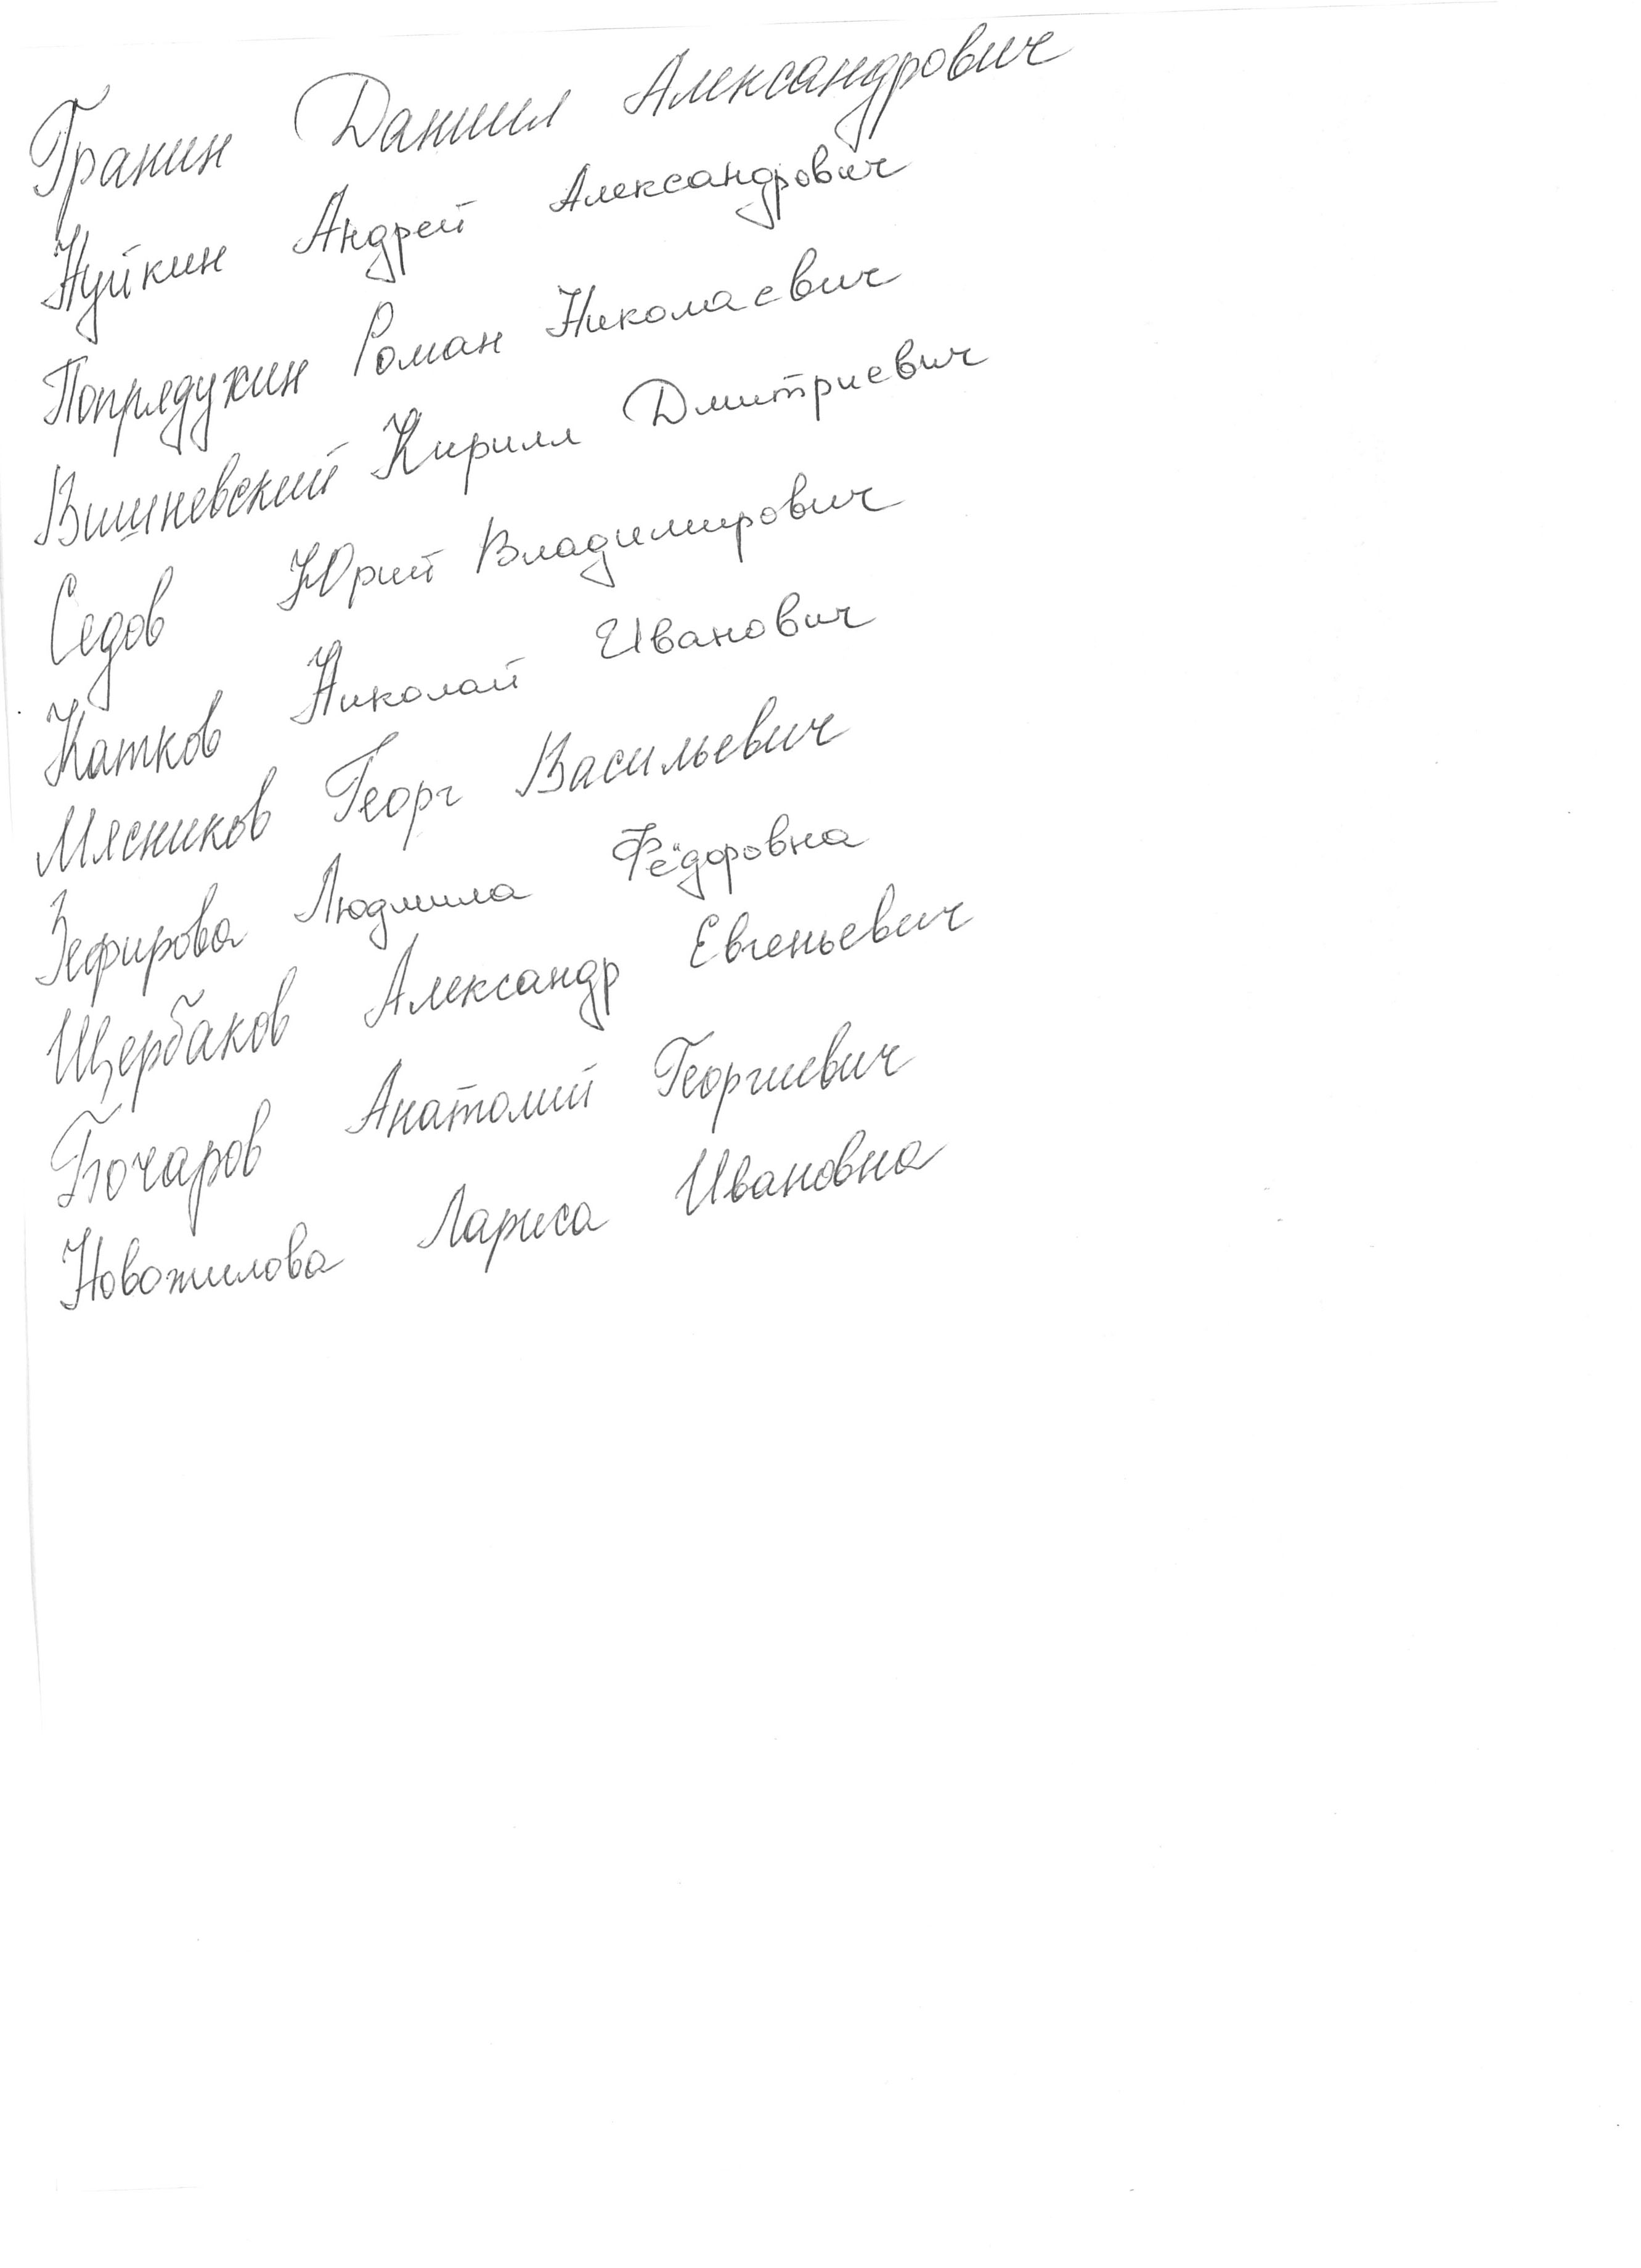 Гранин Даниил Александрович
Нуйкин Андрей Александрович
Попрядухин Роман Николаевич
Вишневский Кирилл Дмитриевич
Седов Юрий Владимирович
Катков Николай Иванович
Мясников Георг Васильевич
Зефирова Людмила Фёдоровна
Щербаков Александр Евгеньевич
Бочаров Анатолий Георгиевич
Новожилова Лариса Ивановна